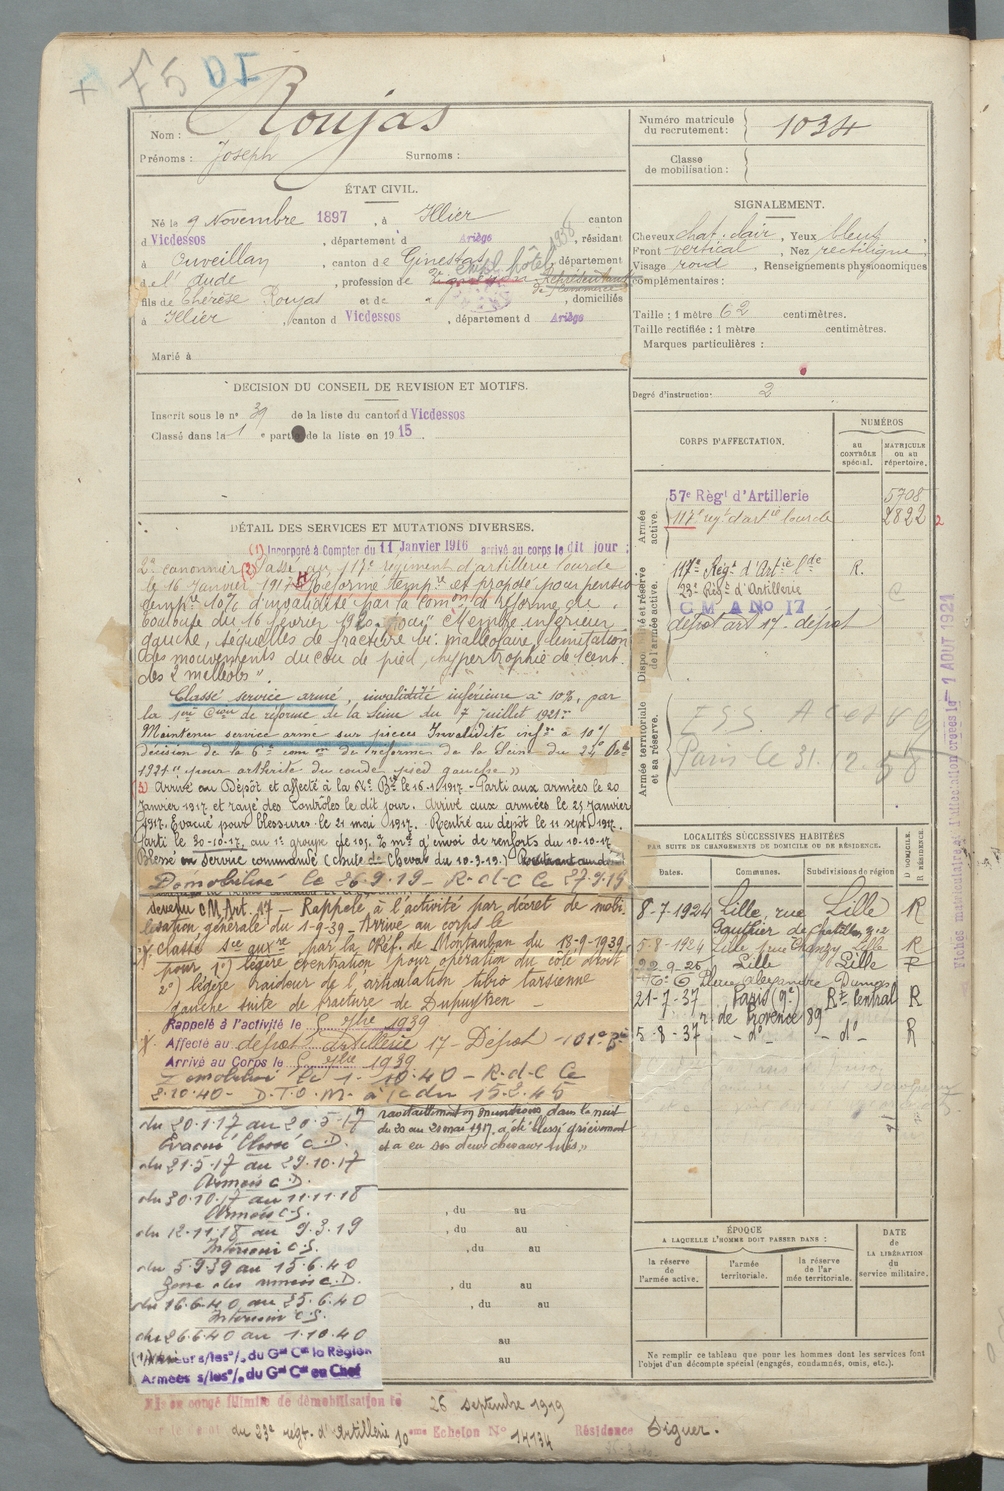 + F5 DI
Nom : Roujas
Prénoms : Joseph Surnoms :
Numéro matricule du recrutement : 1034
Classe de mobilisation :
ÉTAT CIVIL.
Né le 9 Novembre 1897, à Illier canton
d Vicdessos, département d Ariège, résidant
à Ouveillan, canton de Ginestas, département
de l'Aude, profession de Empl. hôtel 1938 Représentant de Commerce
fils de Thérèse Roujas et de " , domiciliés
à Illier, canton d Vicdessos, département d Ariège
Marié à
SIGNALEMENT.
Cheveux chat. clair, Yeux bleus,
Front vertical, Nez rectiligne,
Visage rond, Renseignements physionomiques
complémentaires :
Taille : 1 mètre 62 centimètres.
Taille rectifiée : 1 mètre centimètres.
Marques particulières :
Degré d'instruction : 2
DECISION DU CONSEIL DE REVISION ET MOTIFS.
Inscrit sous le n° 39 de la liste du canton d Vicdessos
Classé dans la 1 e partie de la liste en 1915
DÉTAIL DES SERVICES ET MUTATIONS DIVERSES.
(1) Incorporé à Compter du 11 Janvier 1916 arrivé au corps le dit jour :
2e canonnier (2) Passé au 117e régiment d'artillerie lourde
le 16 Janvier 1917. Réformé tempre et proposé pour pension
tempre 10% d'invalidité par la Comon de réforme de
Toulouse du 16 février 1920 pour "Membre inférieur
gauche, séquelles de fracture bi-malléolaire, limitation
des mouvements du cou de pied, hypertrophie de 1 cent.
des 2 malléoles".
Classé service armé, invalidité inférieure à 10%, par
la 1ère Cion de réforme de la Seine du 7 juillet 1921.
Maintenu service armé sur pièces Invalidité infre à 10%
décision de la 6e comon de réforme de la Seine du 24 Octe
1921 "pour arthrite du coude pied gauche"
3) Arrivé au Dépôt et affecté à la 64e Bie le 16-1-1917 - Parti aux armées le 20
Janvier 1917 et rayé des Contrôles le dit jour. Arrivé aux armées le 25 Janvier
1917. Evacué pour blessures le 21 mai 1917. Rentré au dépôt le 11 septe 1917.
Parti le 30-10-17, au 1e groupe de 105, 2e mre d'envoi de renforts du 10-10-17
Blessé en Service commandé (chute de Cheval du 10-3-19.)
Démobilisé le 26-9-19 - R-d-C le 27-9-19
devenu CM Art. 17 - Rappelé à l'activité par décret de mobi
lisation générale du 1-9-39 - Arrivé au corps le
Classé Sce auxre par la C. Réf. de Montauban du 18-9-1939
pour 1°) légère éventration (pour opération du côté droit
2°) légère raideur de l'articulation tibio tarsienne
gauche suite de fracture de Dupuytren -
Rappelé à l'activité le 5 7bre 1939
Affecté au dépôt artillerie 17 - Dépôt - 101e Bie
Arrivé au Corps le 5 7bre 1939
Démobilisé le 1-10-40 - R-d-C le
2-10-40 - D.T.O.M. à/c du 15-2-45
du 20-1-17 au 20-5-17
Evacué blessé C.D.
du 21-5-17 au 29-10-17
Armées C.D.
du 30-10-17 au 11-11-18
Armées C.S.
du 12-11-18 au 9-3-19
Intérieur C.S.
du 5-9-39 au 15-6-40
Zone des armées C.D.
du 16-6-40 au 25-6-40
Intérieur C.S.
du 26-6-40 au 1-10-40
s/les %. du Gal Ct la Région
Armées s/les %. du Gal Ct en Chef
ravitaillement en munitions dans la nuit
du 20 au 21 mai 1917, a été blessé grièvement
et a eu ses deux chevaux tués"
, du au
, du au
, du au
, du au
, du au
au
au
Mis en congé illimité de démobilisation le 26 septembre 1919
du 23e régt. d'Artillerie 10ème Echelon N° 14134 Résidence Siguer.
CORPS D'AFFECTATION.
NUMÉROS
au CONTRÔLE spécial.
MATRICULE ou au répertoire.
Armée active.
57e Régt d'Artillerie 5708
117e régt d'artie lourde 2822
Disponibilité et réserve de l'armée active.
117e Régt d'Artie Lde R.
23e Régt d'Artillerie C
CM A No 17
dépôt art 17 - dépôt
Armée territoriale et sa réserve.
Paris le 31.12.58
Fiches matriculaire et d'affectation créées le 1 AOUT 1921
LOCALITÉS SUCCESSIVES HABITÉES
PAR SUITE DE CHANGEMENTS DE DOMICILE OU DE RÉSIDENCE.
Dates. Communes. Subdivisions de région D. DOMICILE. R. RÉSIDENCE.
8-7-1924 Lille, rue Gauthier de Chatillon, n°2 Lille R
5-8-1924 Lille rue Chanzy Lille R
22-9-26 Lille Lille R
Place Alexandre Dumas
21-7-37 Paris (9e) Rt Central R
r. de Provence 89
5-8-37 - d° - - d° - R
ÉPOQUE
A LAQUELLE L'HOMME DOIT PASSER DANS :
la réserve de l'armée active.
l'armée territoriale.
la réserve de l'armée territoriale.
DATE de LA LIBÉRATION du service militaire.
Ne remplir ce tableau que pour les hommes dont les services font
l'objet d'un décompte spécial (engagés, condamnés, omis, etc.).